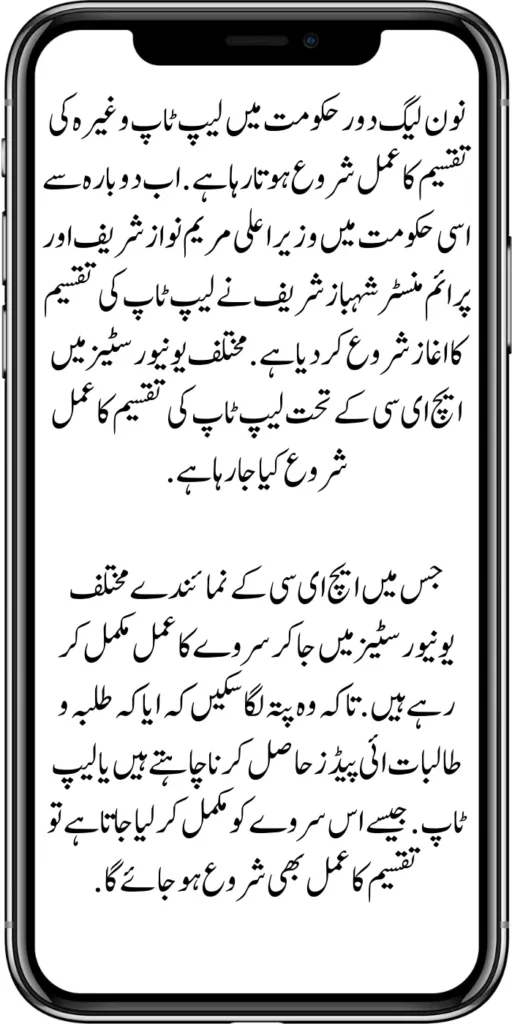 نون لیگ دور حکومت میں لیپ ٹاپ وغیرہ کی
تقسیم کا عمل شروع ہوتا رہا ہے۔ اب دوبارہ سے
اسی حکومت میں وزیر اعلی مریم نواز شریف اور
پرائم منسٹر شہباز شریف نے لیپ ٹاپ کی تقسیم
کا اغاز شروع کر دیا ہے۔ مختلف یونیورسٹیز میں
ایچ ای سی کے تحت لیپ ٹاپ کی تقسیم کا عمل
شروع کیا جا رہا ہے۔
جس میں ایچ ای سی کے نمائندے مختلف
یونیورسٹیز میں جا کر سروے کا عمل مکمل کر
رہے ہیں۔ تاکہ وہ پتہ لگا سکیں کہ ایا کہ طلبہ و
طالبات ائی پیڈز حاصل کرنا چاہتے ہیں یا لیپ
ٹاپ۔ جیسے اس سروے کو مکمل کر لیا جاتا ہے تو
تقسیم کا عمل بھی شروع ہو جائے گا۔